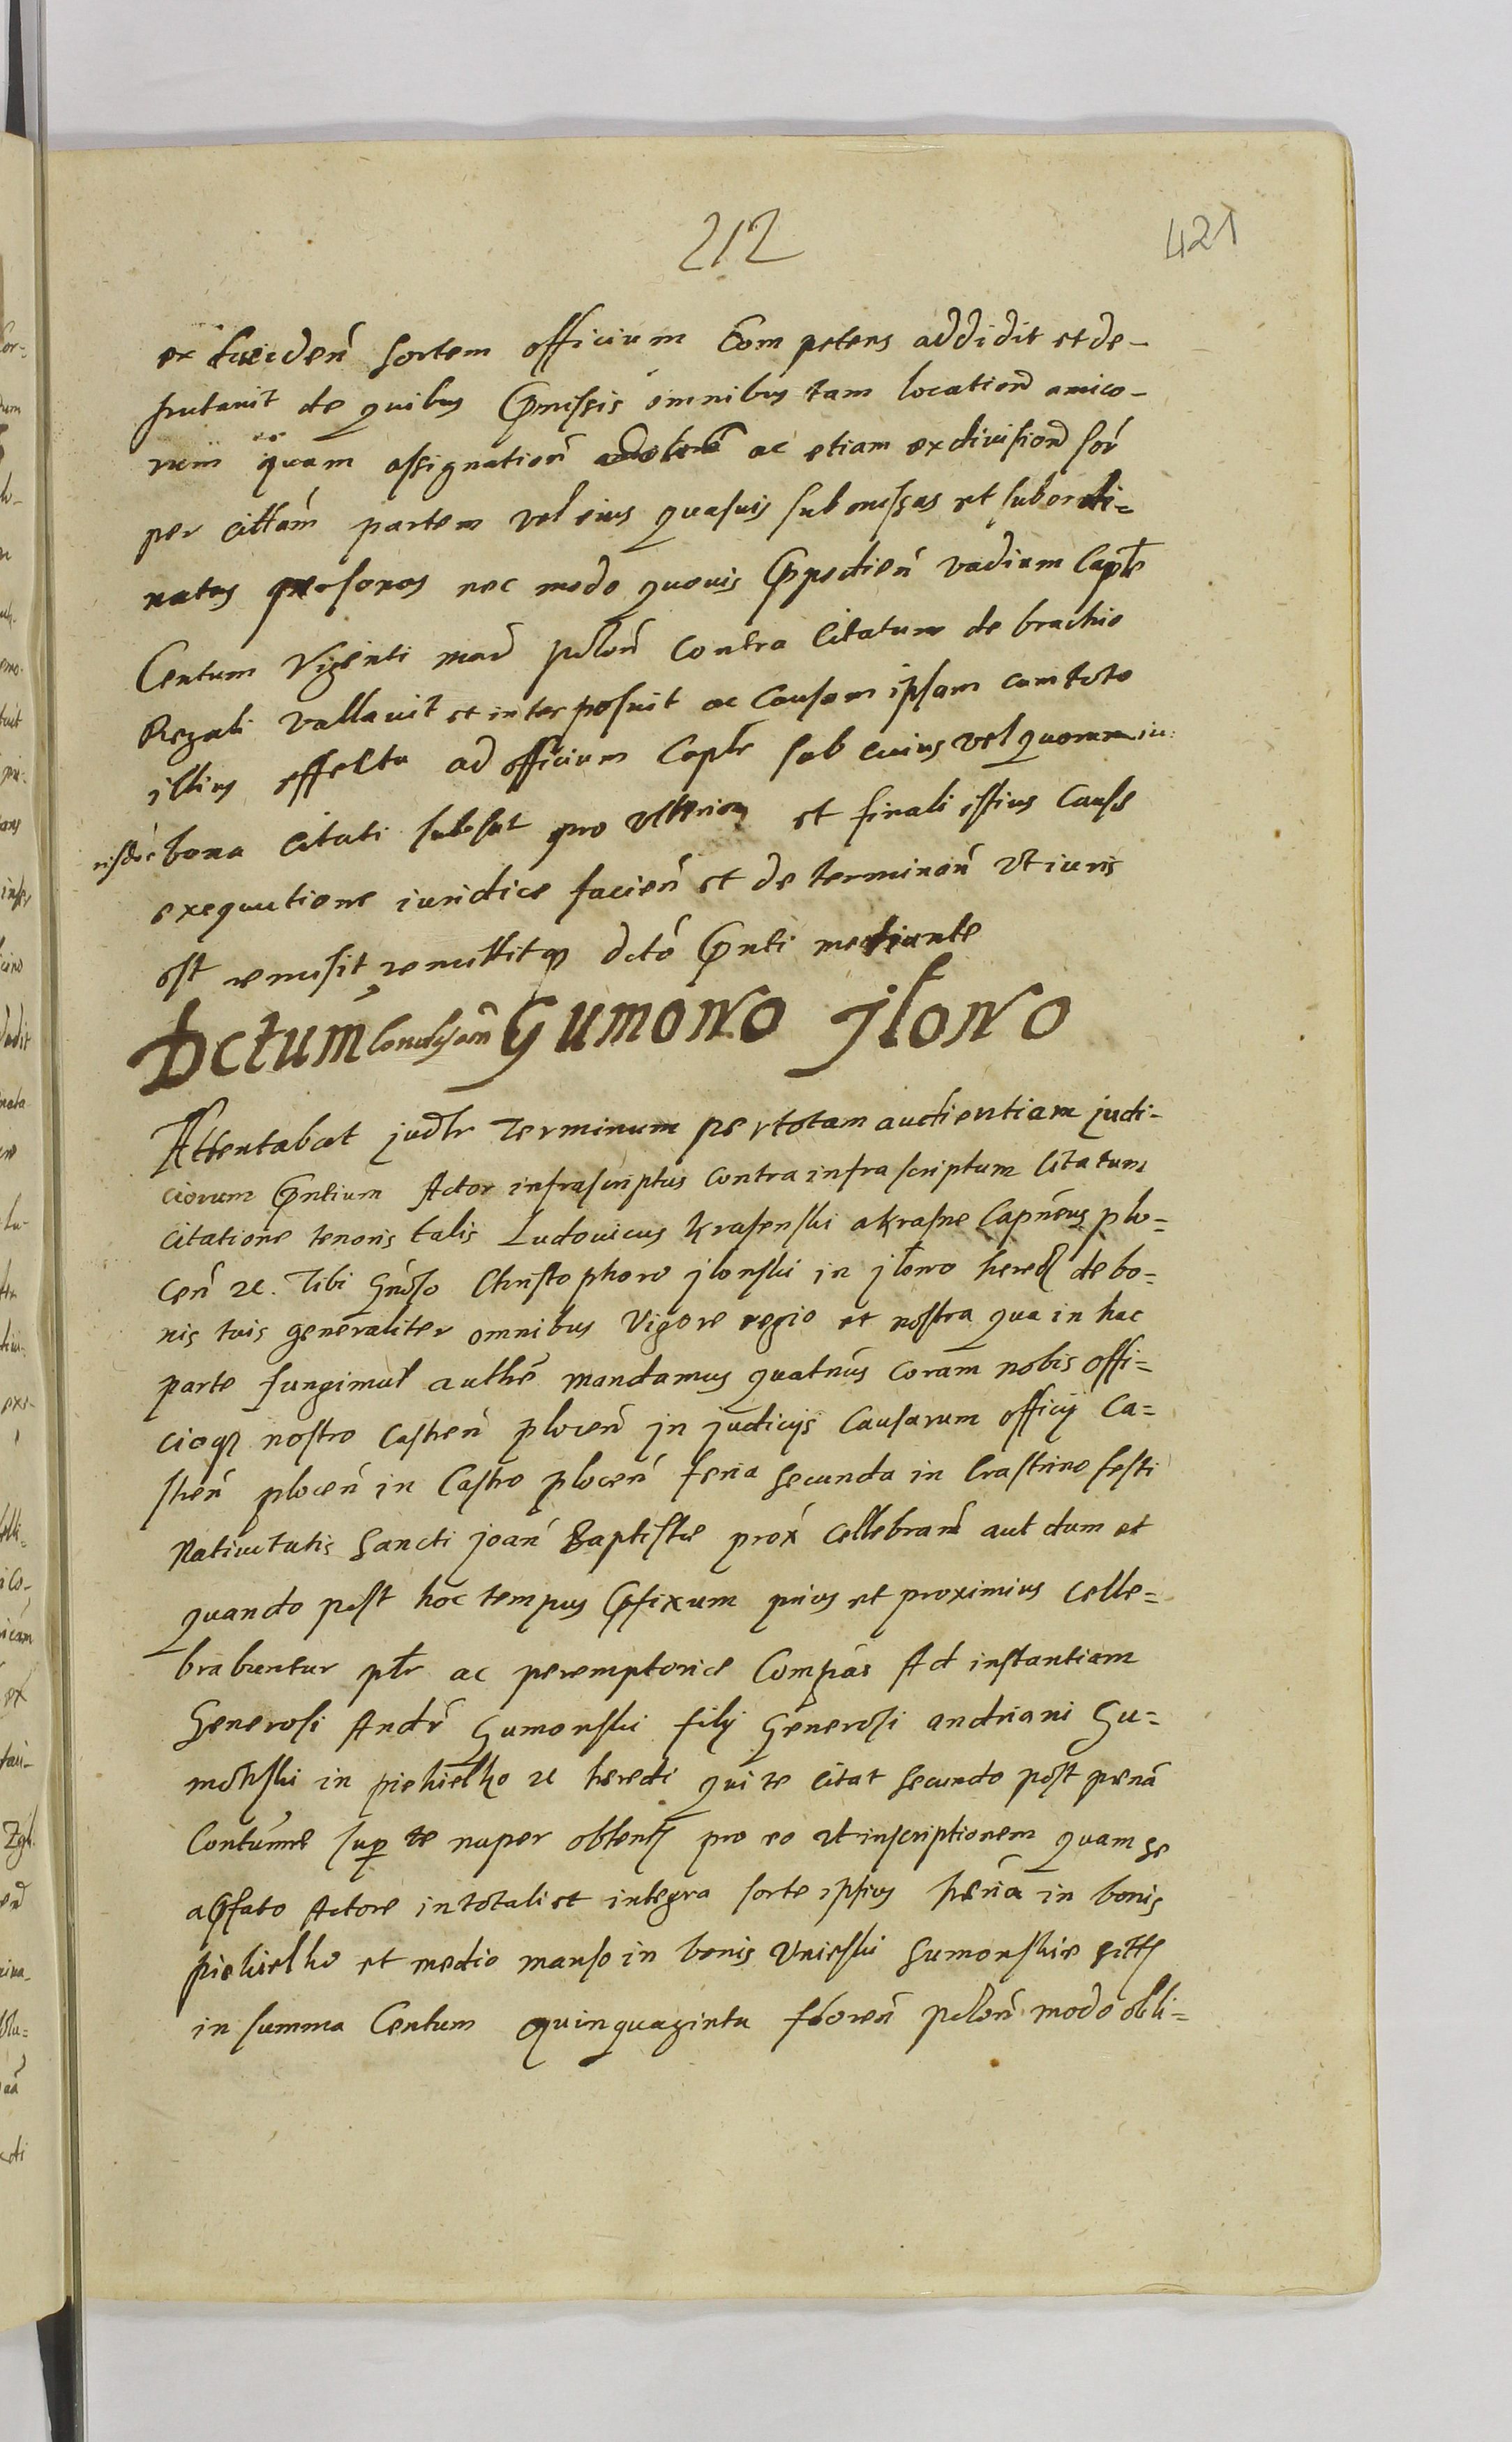 212
421
ex fuiden̄ sortem officium Competens addidit et de-
putauit de quibus p̄missis omnibus tam location̄ amico-
rum quam assignation̄ ac etiam ex division̄ sor̄
per cittām partem vel eius quasuis submissas et subordi=
natas personas nec modo quouis p̄pedien̄ vadium Capłe
Centum Viginti mar̄ polon̄ contra Citatum de brachio
Regali vallauit et interposuit ac Causam ipsam cum toto
illius effectu ad officium Capłe sub cuius vel quorum iu:
risdic̄ bona citati subsūt pro ulteriori et finali istius Causę
exequutione iuridice facien̄ et determinan̄ ut iuris
est remisit remittitq̄ dctō p̄nti mediante
Dctum̄ Condemn̄ Gumowo Jłowo
Attentabat judłr Terminum per totam audientiam judi-
ciorum p̄ntium Actor infrascriptus contra infrascriptum Citatum
citatione tenoris talis Ludouicus Krasenski a Krasne Capn̄eus plo=
cen̄ zc. Tibi Gn̄oso Christophoro jlonski in jłowo hered̄ de bo=
nis tuis generaliter omnibus Vigore regio et nostra qua in hac
parte fungimur authē mandamus quatn̄us coram nobis offi=
cioq̄ nostro castren̄ plocen̄ in judicijs Causarum officij Ca=
stren̄ plocen̄ in Castro plocen̄ feria secunda in Crastino festi
Natiuitatis Sancti joan̄ Baptistæ prox̄ cellebran̄ aut dum et
quando post hoc tempus p̄fixum prius et proximius celle=
brabuntur płr ac peremptorie Compās Ad instantiam
Generosi Andr̄ Gumonski filij Generosi andriani Gu=
mowski in piekiełko zc heredi qui te citat secundo post pœnā
Contum̄e sup̄ te nuper obtent̄ pro eo ut inscriptionem quam se
a p̄fato Actore in totali et integra sorte ipsius in bonis
piekiełko et medio manso in bonis Unieski Gumonskie sitt̄
in summa Centum quinquaginta floren̄ polon̄ modo obli=